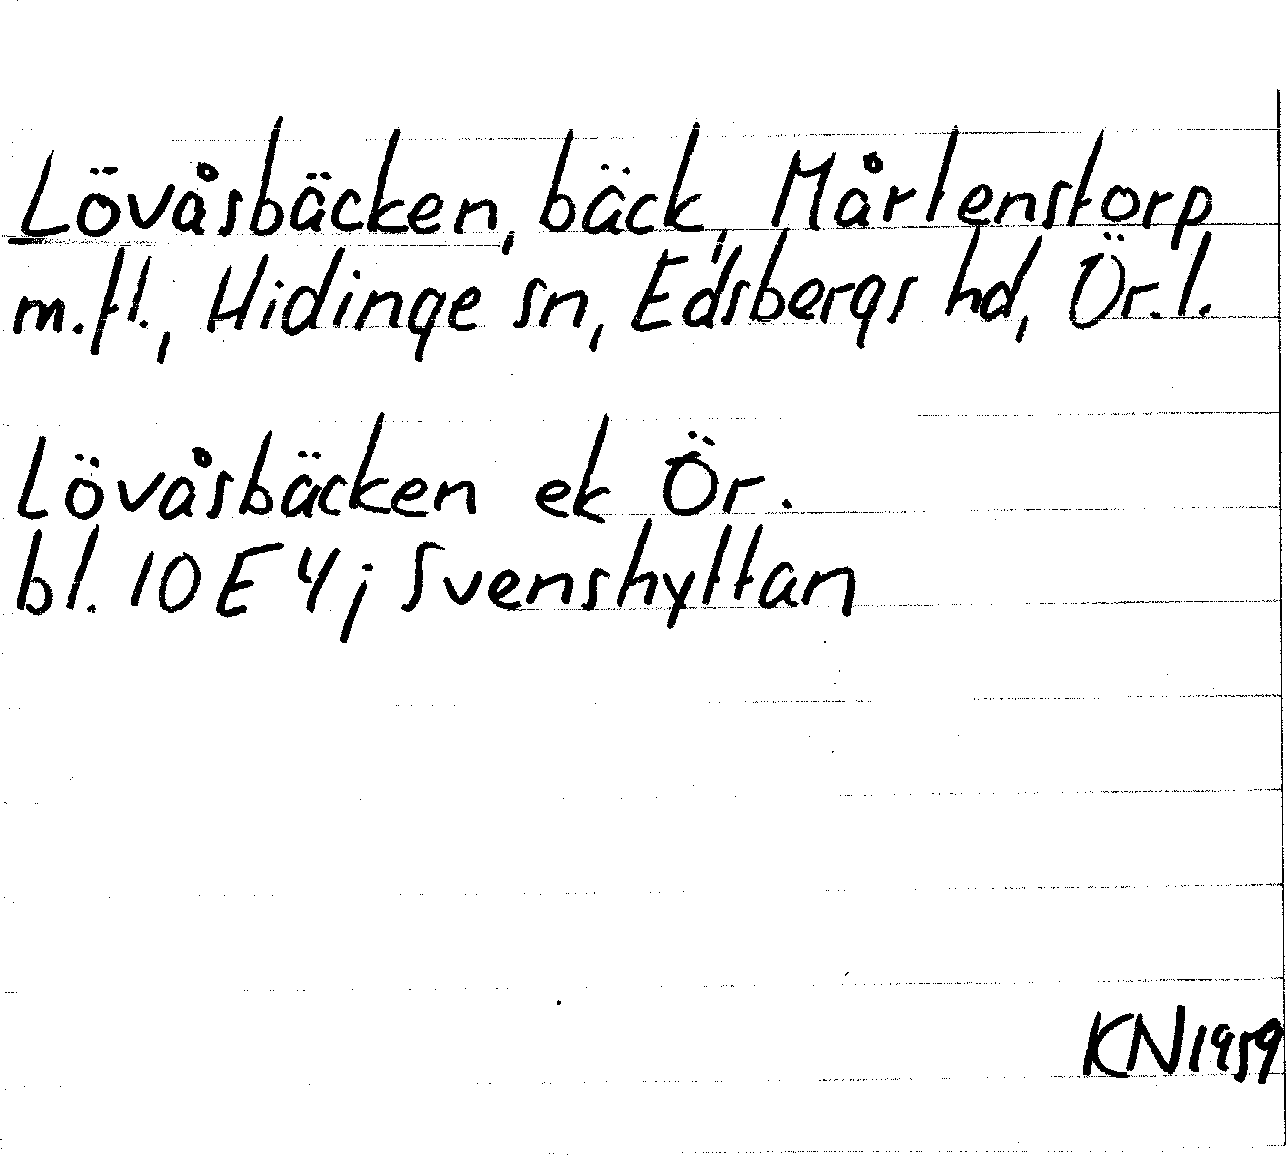 Lövåsbäcken, bäck, Mårtenstorp
m.fl., Hidinge sn, Edsbergs hd, Ör.l.
Lövåsbäcken ek Ör.
bl. 10E4j Svenshyttan
KN1959